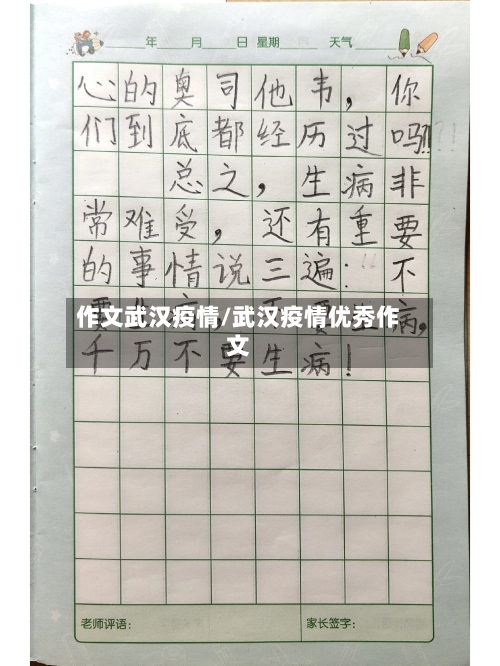 年 月 日 星期 天气
心的奥司他韦，你
们到底都经历过吗?!!
总之，生病非
常难受，还有重要
的事情说三遍：“不
要生病，
作文武汉疫情/武汉疫情优秀作
文
千万不要生病！
老师评语： 家长签字：